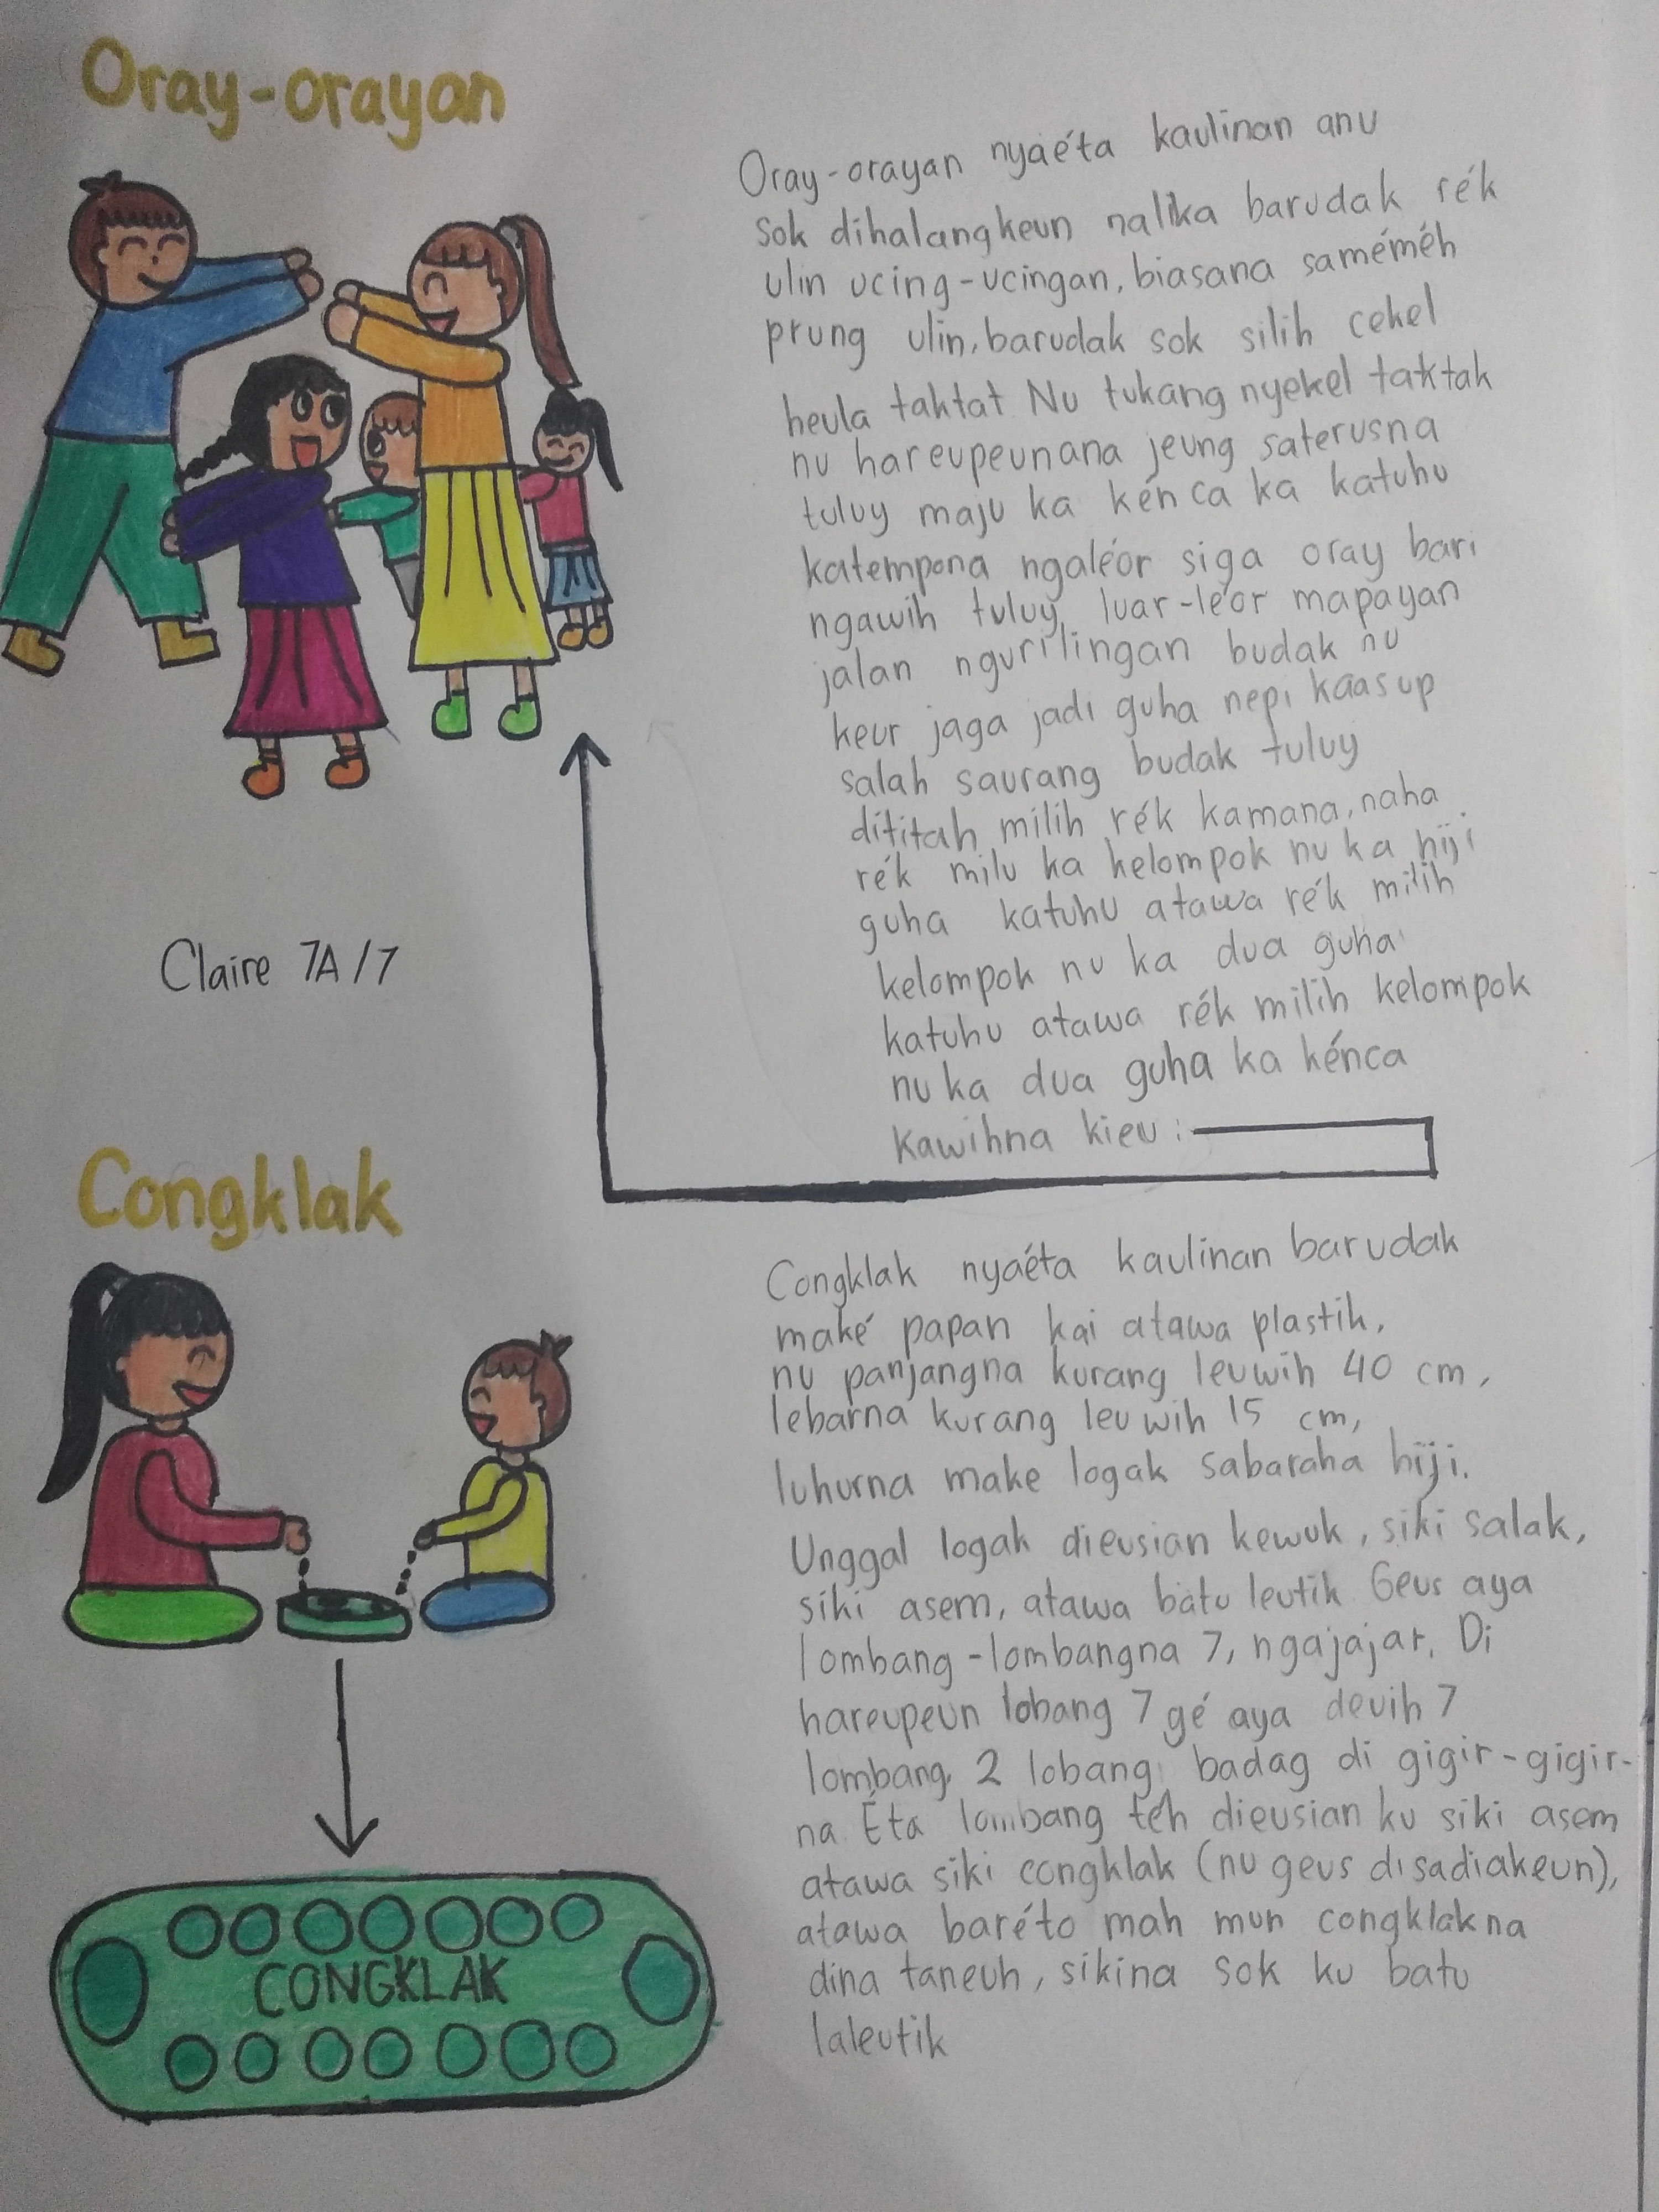 Oray-orayan
Oray-orayan nyaéta kaulinan anu
sok dihalangkeun nalika barudak rék
ulin ucing-ucingan, biasana saméméh
prung ulin, barudak sok silih cekel
heula taktat Nu tukang nyekel taktak
nu hareupeunana jeung saterusna
tuluy maju ka kénca ka katuhu
katempona ngaléor siga oray bari
ngawih tuluy, luar-léor mapayan
jalan ngurilingan budak nu
keur jaga jadi guha nepi kaasup
salah saurang budak tuluy
dititah milih rék kamana, naha
rék milu ka kelompok nu ka hiji
guha katuhu atawa rék milih
kelompok nu ka dua guha
katuhu atawa rék milih kelompok
nu ka dua guha ka kénca
kawihna kieu :
Claire 7A/7
Congklak
Congklak nyaéta kaulinan barudak
maké papan kai atawa plastik,
nu panjangna kurang leuwih 40 cm,
lebarna kurang leuwih 15 cm,
luhurna make logak sabaraha hiji.
Unggal logak dieusian kewuk, siki salak,
siki asem, atawa batu leutik Geus aya
lombang-lombangna 7, ngajajar. Di
hareupeun lobang 7 gé aya deuih 7
lombang, 2 lobang badag di gigir-gigir-
na. Éta lombang téh dieusian ku siki asem
atawa siki congklak (nu geus disadiakeun),
atawa baréto mah mun congklakna
dina taneuh, sikina sok ku batu
laleutik
CONGKLAK